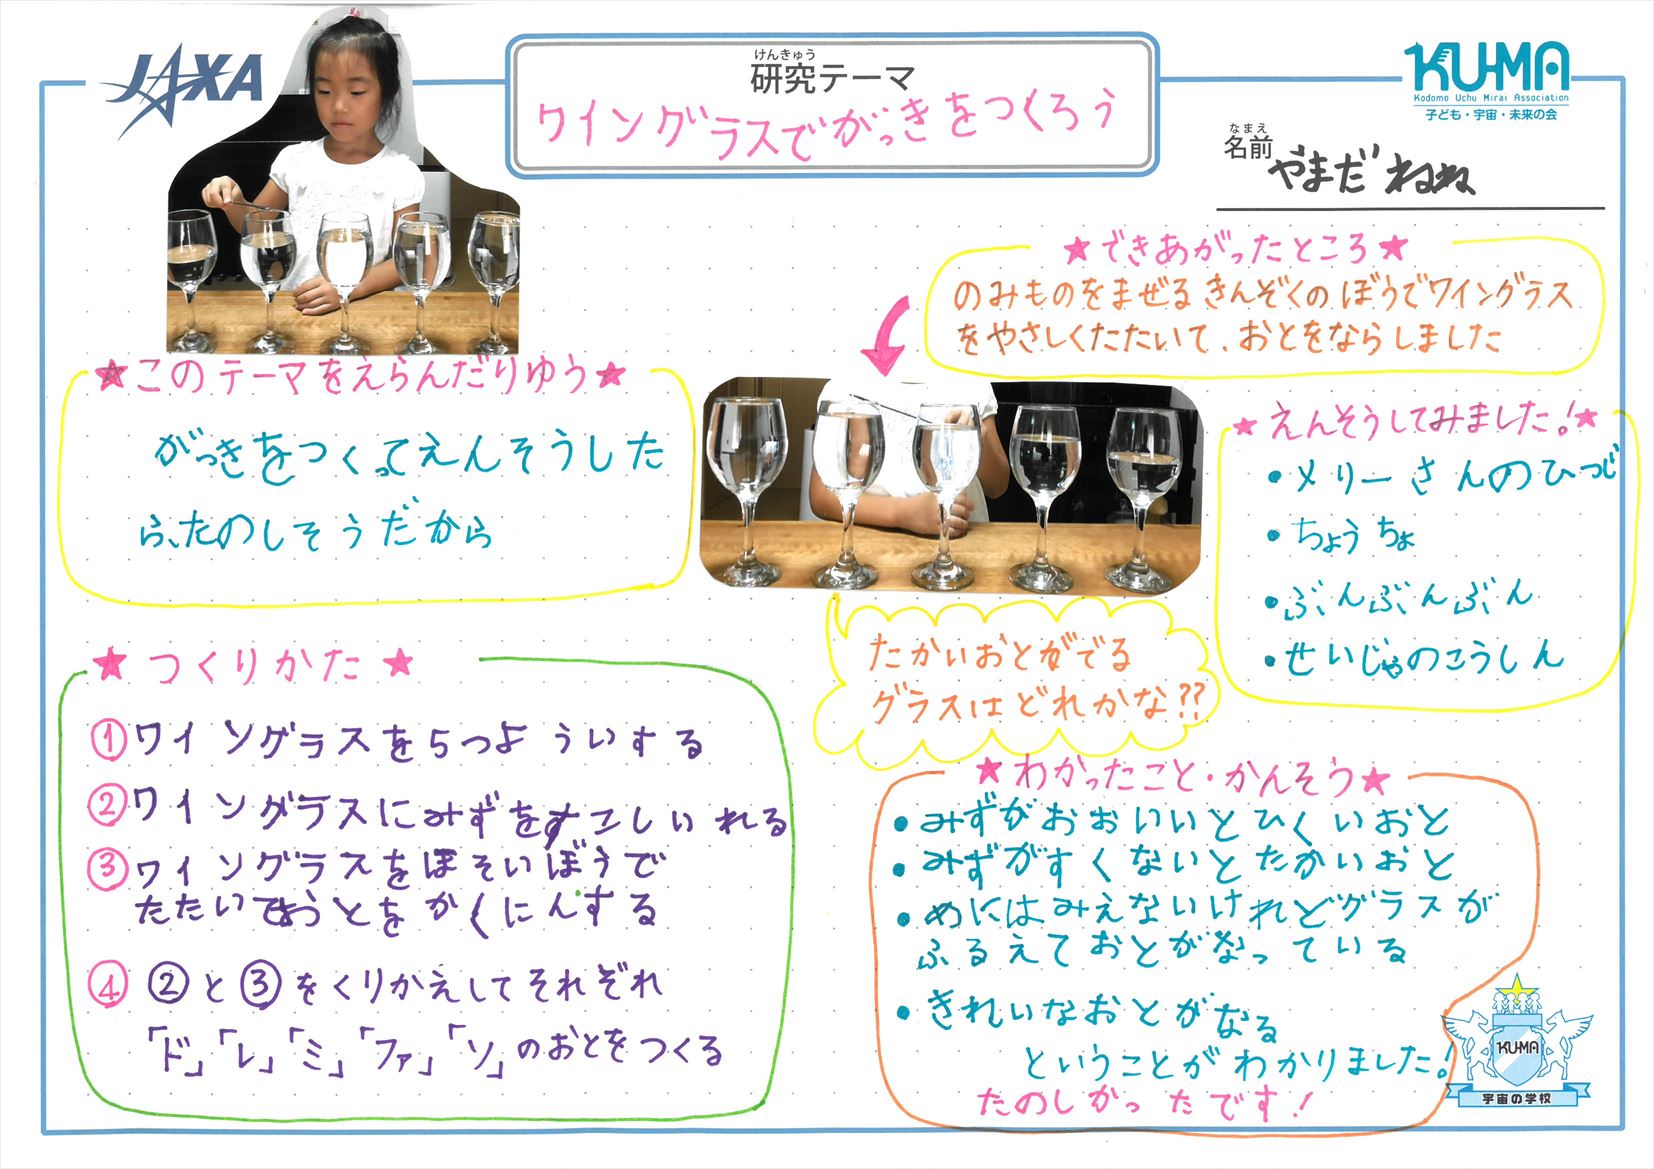 JAXA
けんきゅう
研究テーマ
ワイングラスでがっきをつくろう
KUMA
Kodomo Uchu Mirai Association
子ども・宇宙・未来の会
なまえ
名前
やまだ ねね
★このテーマをえらんだりゆう★
がっきをつくってえんそうした
ら、たのしそうだから
★できあがったところ★
のみものをまぜるきんぞくのぼうでワイングラス
をやさしくたたいて、おとをならしました
★えんそうしてみました!★
・メリーさんのひつじ
・ちょうちょ
・ぶんぶんぶん
・せいじゃのこうしん
たかいおとがでる
グラスはどれかな??
★つくりかた★
①ワイングラスを5つよういする
②ワイングラスにみずをすこしいれる
③ワイングラスをほそいぼうで
たたいておとをかくにんする
④②と③をくりかえしてそれぞれ
「ド」「レ」「ミ」「ファ」「ソ」のおとをつくる
★わかったこと・かんそう★
・みずがおおいいとひくいおと
・みずがすくないとたかいおと
・めにはみえないけれどグラスが
ふるえておとがなっている
・きれいなおとがなる
ということがわかりました!
たのしかったです!
KUMA
宇宙の学校